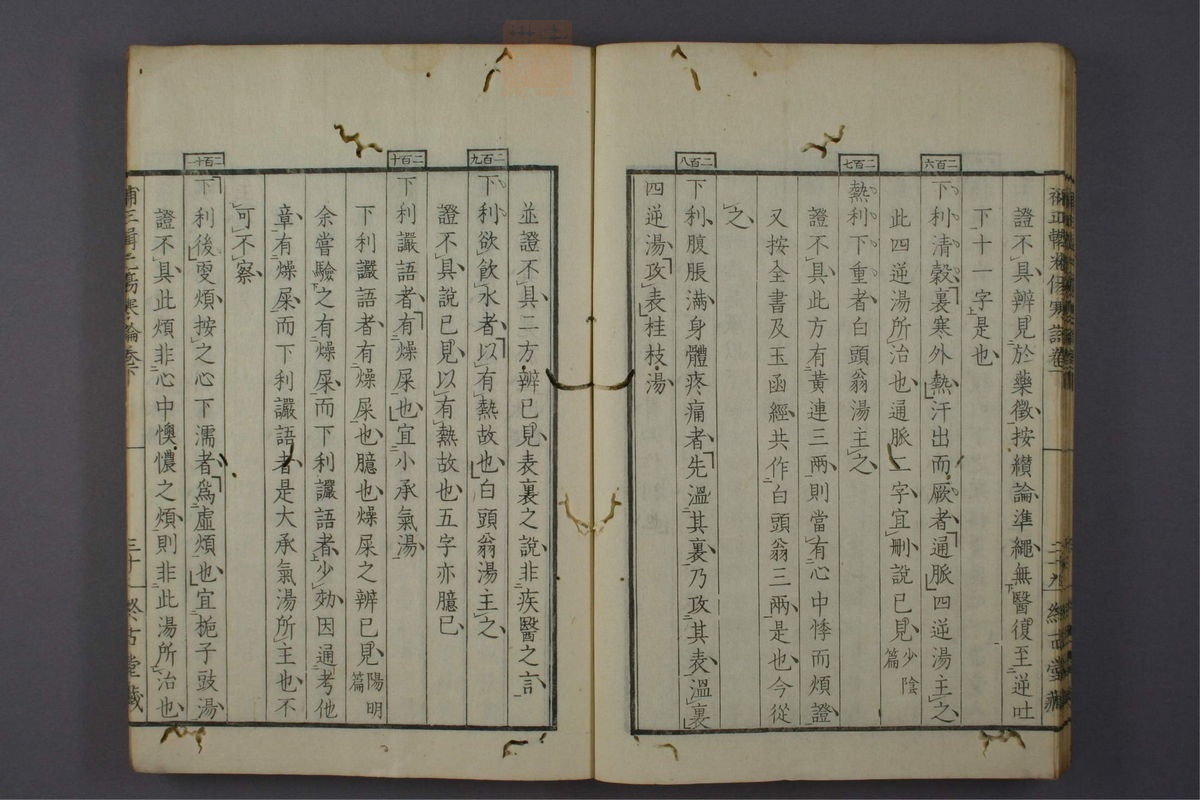 證不具辨見於藥徵按續論準繩無醫復至逆吐
下十一字是也
二百六
下利清穀裏寒外熱汗出而厥者通脈四逆湯主之
此四逆湯所治也通脈二字宜刪說已見少陰篇
二百七
熱利下重者白頭翁湯主之
證不具此方有黃連三兩則當有心中悸而煩證
又按全書及玉函經共作白頭翁三兩是也今從
之
二百八
下利腹脹滿身體疼痛者先溫其裏乃攻其表溫裏
四逆湯攻表桂枝湯
並證不具二方辨已見表裏之說非疾醫之言
二百九
下利欲飲水者以有熱故也白頭翁湯主之
證不具說已見以有熱故也五字亦臆已
二百十
下利讝語者有燥屎也宜小承氣湯
下利讝語者有燥屎也臆也燥屎之辨已見陽明篇
余嘗驗之有燥屎而下利讝語者少効因通考他
章有燥屎而下利讝語者是大承氣湯所主也不
可不察
二百十一
下利後更煩按之心下濡者爲虛煩也宜梔子豉湯
證不具此煩非心中懊憹之煩則非此湯所治也
三十 終古堂藏